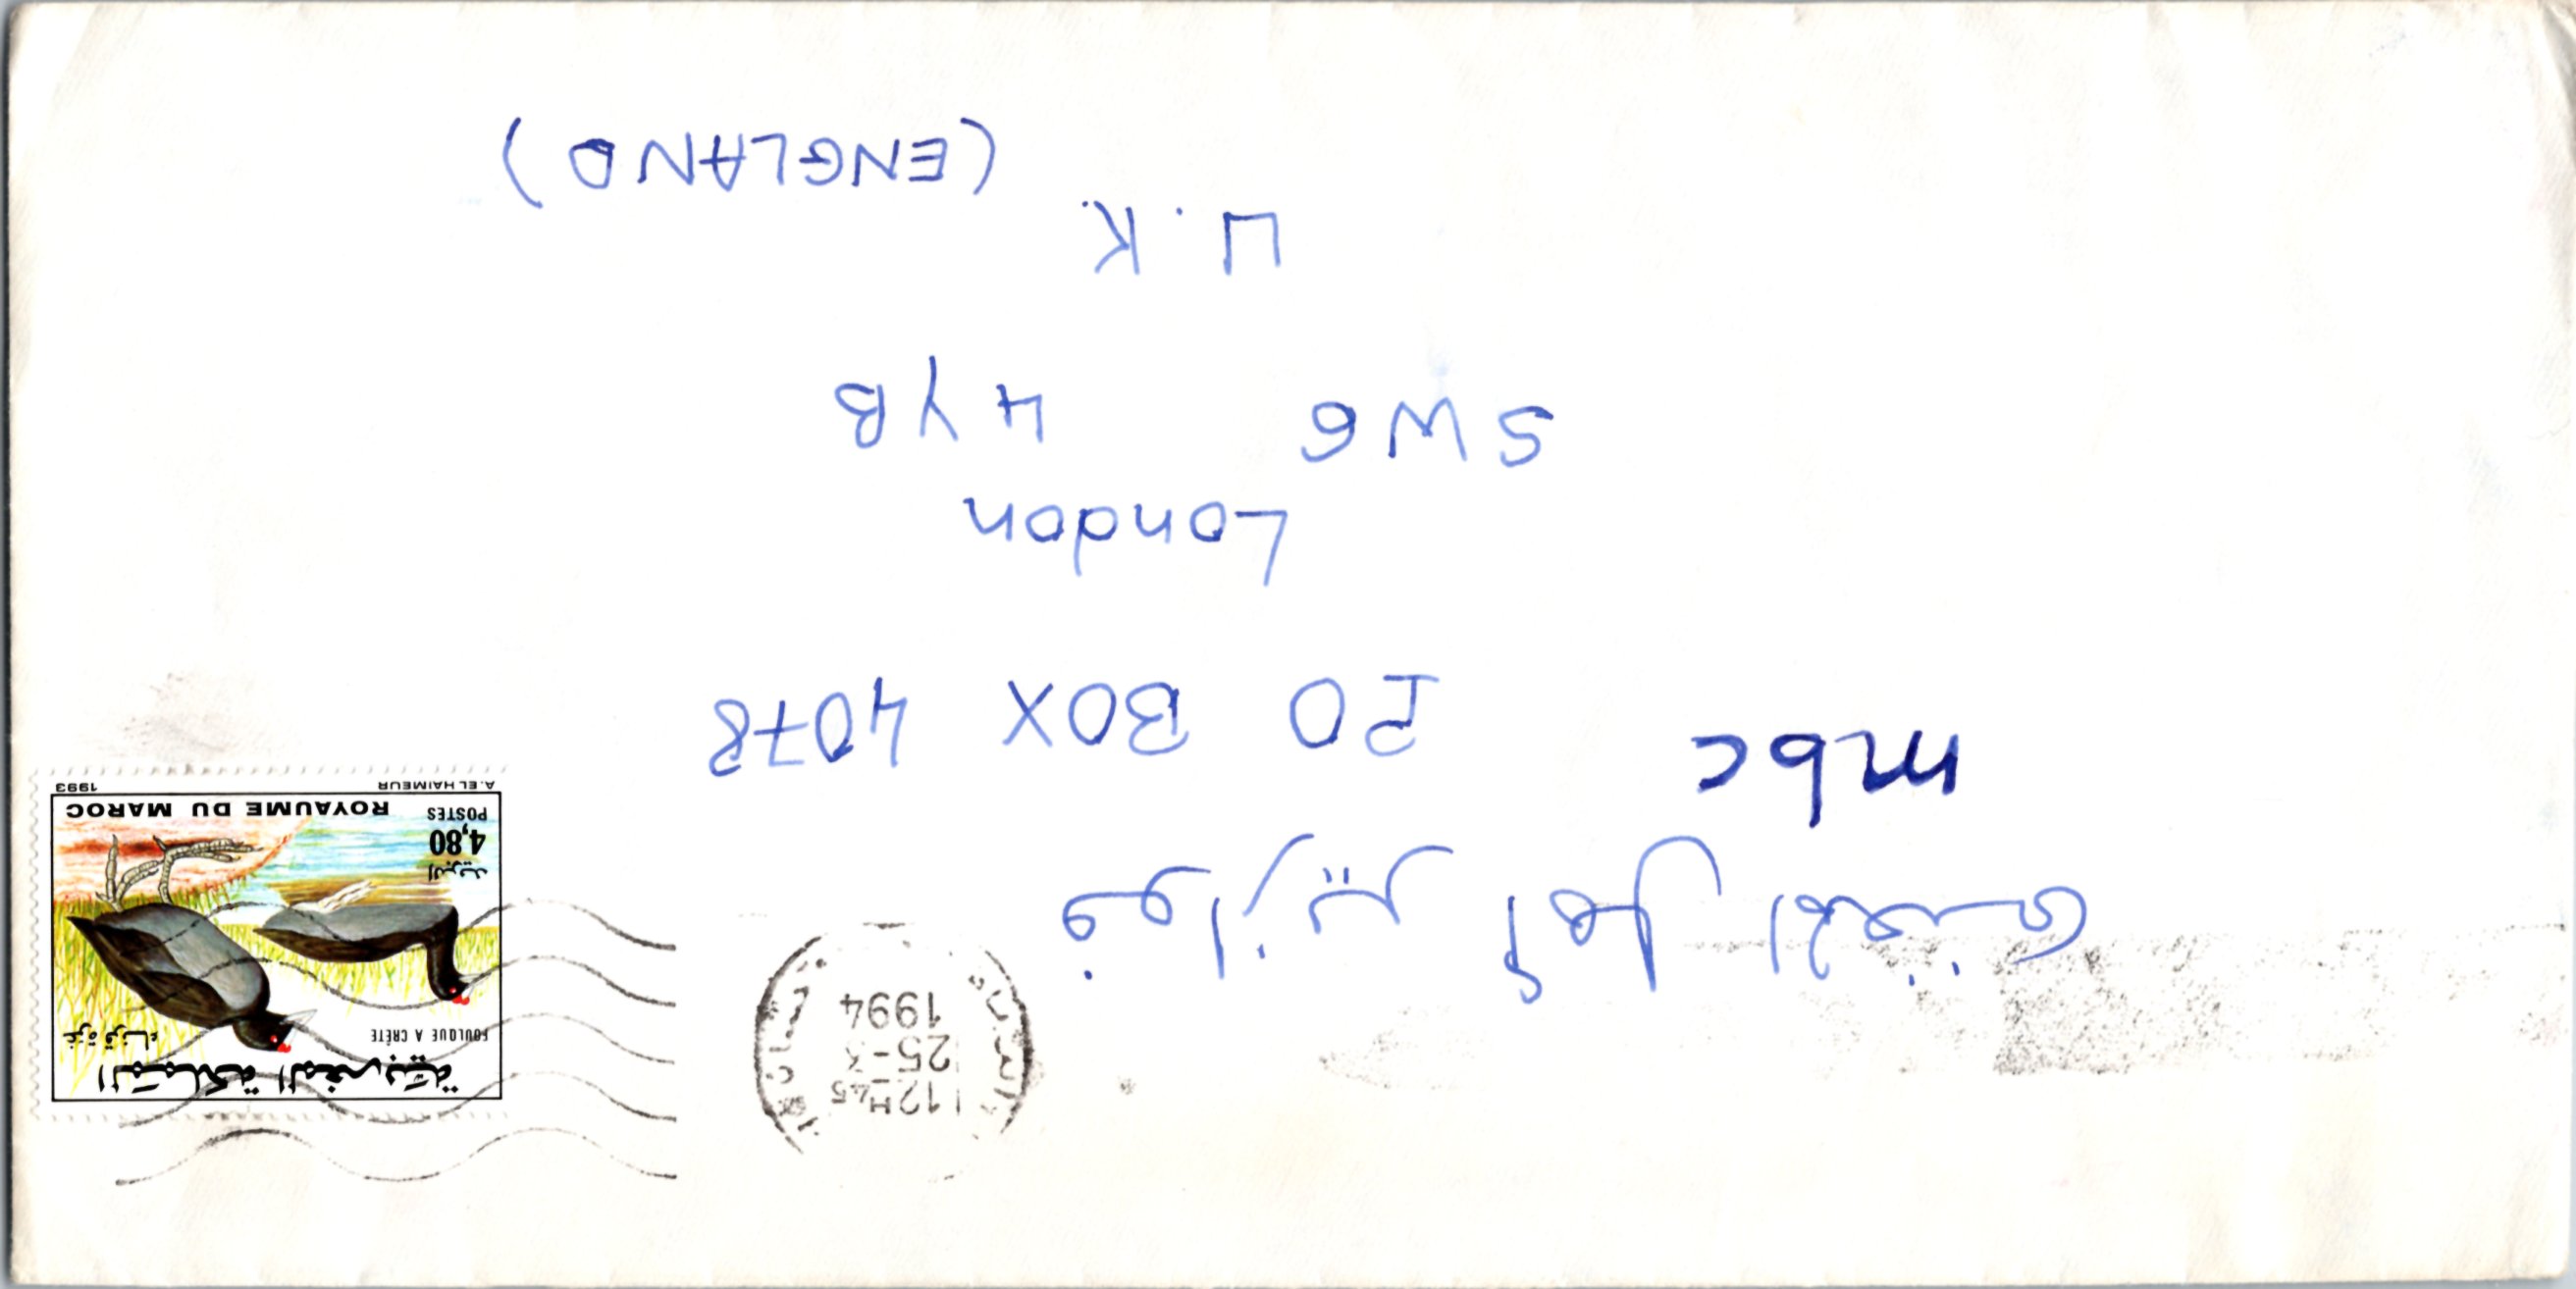 12H45
25-3
1994
المملكة المغربية
FOULQUE A CRÊTE
غرة قرناء
البريد
4,80
POSTES
ROYAUME DU MAROC
A. EL HAIMEUR 1993
فوازير أهل
mbc PO BOX 4078
London
SW6 4YB
U.K.
(ENGLAND)